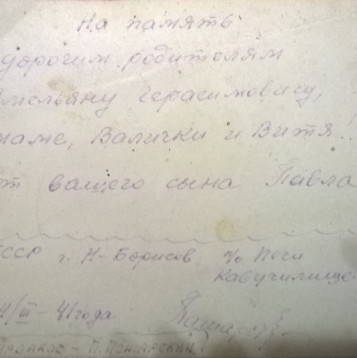 На память
дорогим родителям
мельяну Герасимовичу,
маме, Валички и Витя
от вашего сына Павла
ССР г. Н-Борисов п/о Печи
Кавучилище
/III-41 года